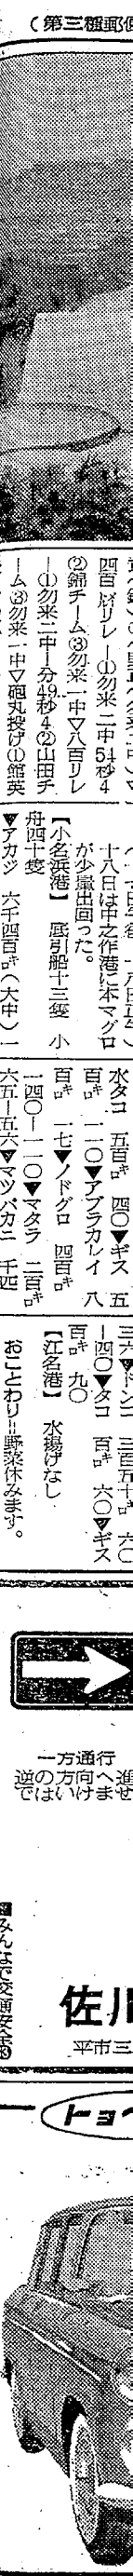 （第三種郵便
四百㍍リレー①勿来二中54秒4
②錦チーム③勿来一中▽八百リレ
ー①勿来二中1分49秒4②山田チ
ーム③勿来一中▽砲丸投げ①館英
十八日は中之作港に本マグロ
が少量出回った。
【小名浜港】　底引船十三隻　小
舟四十隻
▼アカジ　六千四百㌔（大中）一
水タコ　五百㌔　四〇▼ギス　五
百㌔　一一〇▼アブラカレイ　八
百㌔　一七▼ノドグロ　四百㌔
一四〇—一一〇▼マダラ　二百㌔
六五—五六▼マツバカニ　千匹
三六▼ドンコ　三百五十㌔　六〇
—四〇▼タコ　百㌔　六〇▼ギス
百㌔　九〇
【江名港】　水揚げなし
おことわり＝野菜休みます。
一方通行
逆の方向へ進
ではいけませ
みんなで交通安全
佐川
平市三
トヨペ